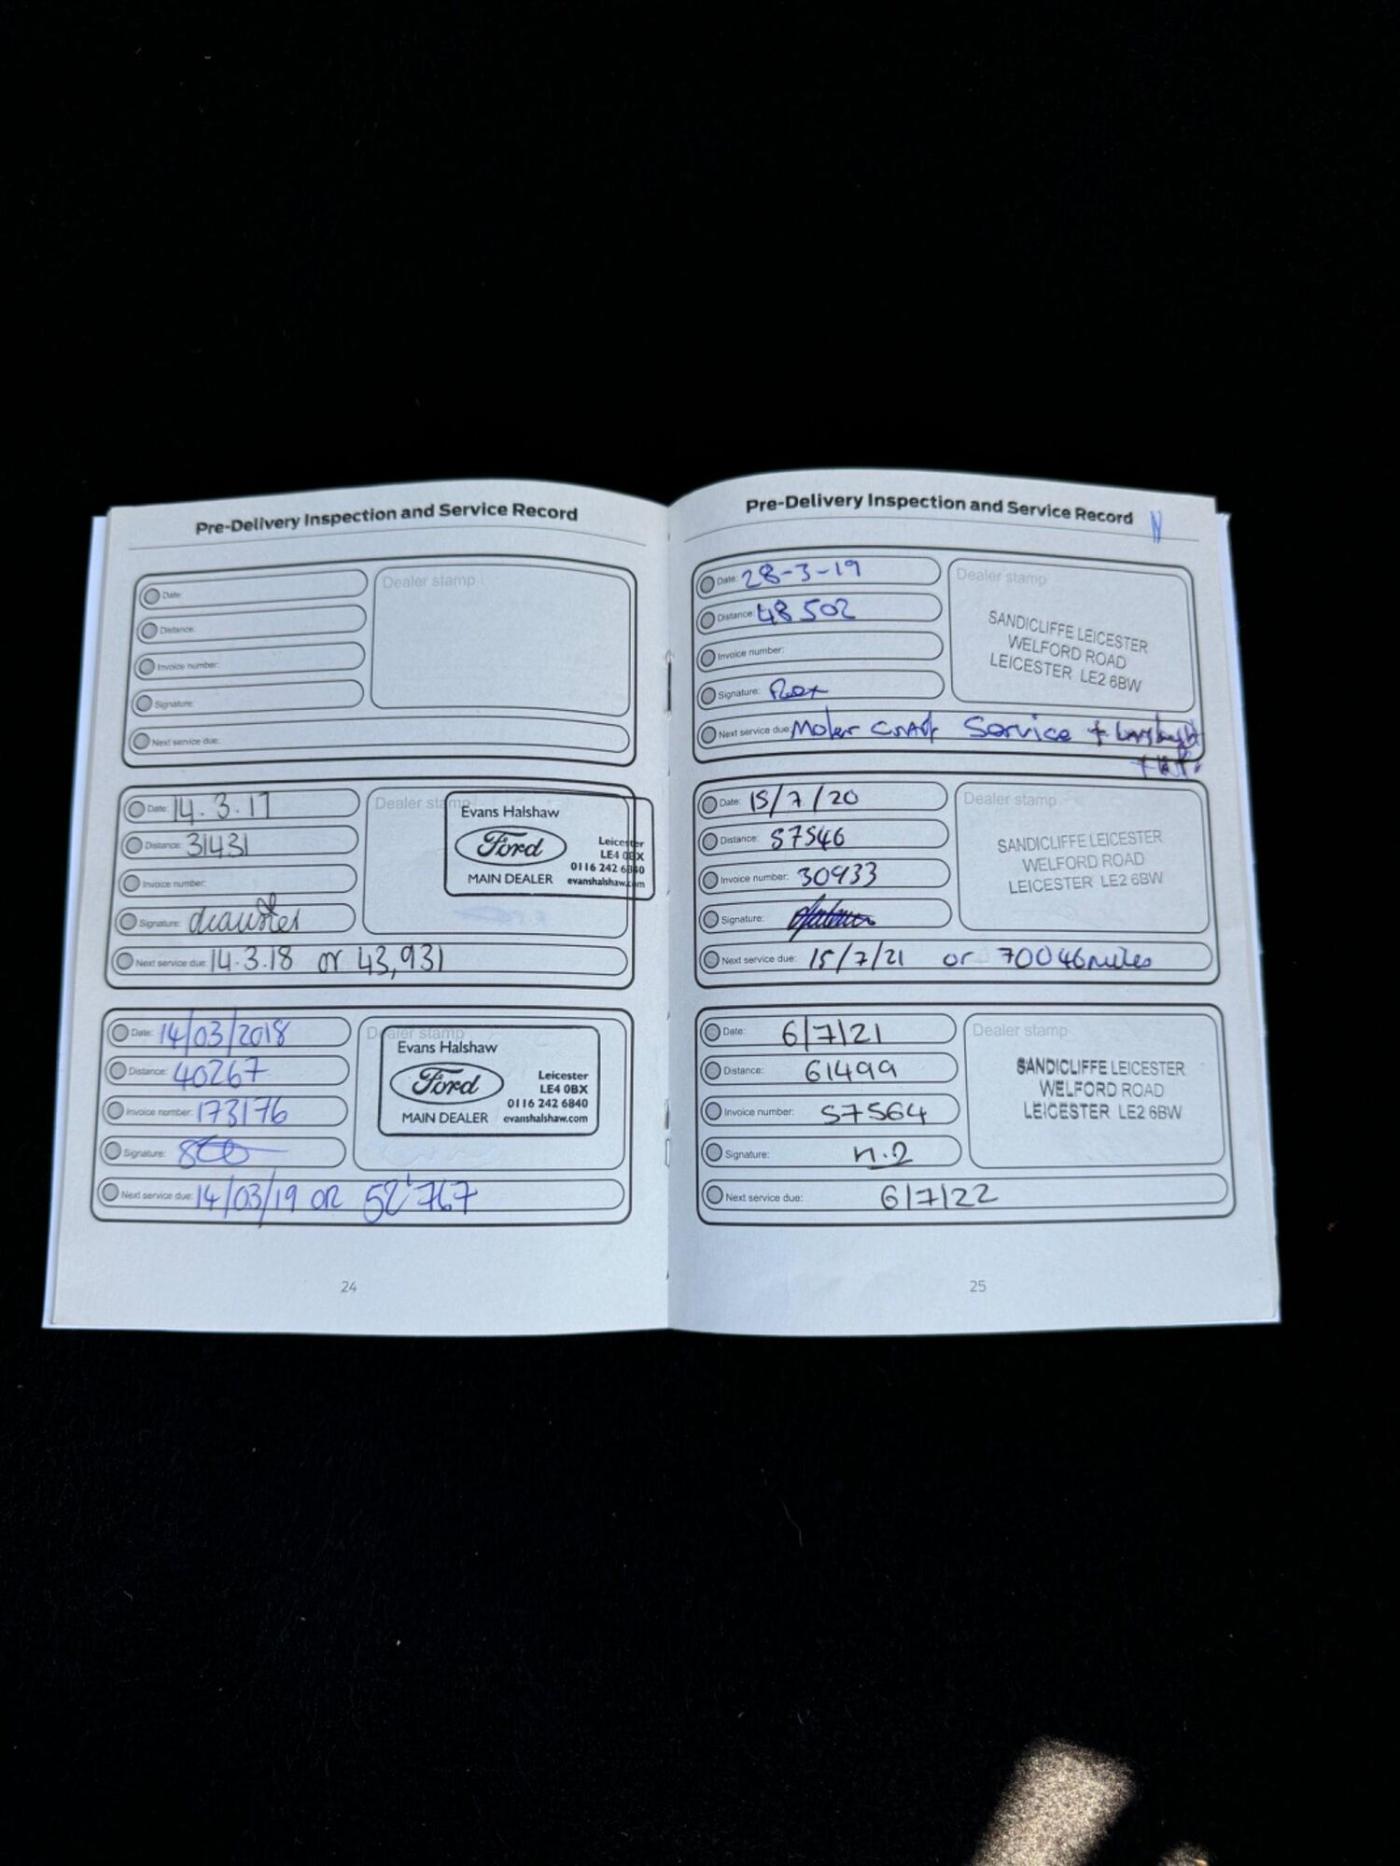 Pre-Delivery Inspection and Service Record
Date:
Distance:
Invoice number:
Signature:
Next service due:
Dealer stamp
Date: 14.3.17
Distance: 31431
Invoice number:
Signature:
Next service due: 14.3.18 or 43,931
Dealer stamp
Evans Halshaw
Ford
MAIN DEALER
Leicester
LE4 0BX
0116 242 6840
evanshalshaw.com
Date: 14/03/2018
Distance: 40267
Invoice number: 173176
Signature:
Next service due: 14/03/19 OR 52'767
Dealer stamp
Evans Halshaw
Ford
MAIN DEALER
Leicester
LE4 0BX
0116 242 6840
evanshalshaw.com
24
Pre-Delivery Inspection and Service Record
Date: 28-3-19
Distance: 48502
Invoice number:
Signature:
Next service due: Motor Craft Service +
Dealer stamp
SANDICLIFFE LEICESTER
WELFORD ROAD
LEICESTER LE2 6BW
Date: 15/7/20
Distance: 57546
Invoice number: 30933
Signature:
Next service due: 15/7/21 or 70046 miles
Dealer stamp
SANDICLIFFE LEICESTER
WELFORD ROAD
LEICESTER LE2 6BW
Date: 6/7/21
Distance: 61499
Invoice number: 57564
Signature: n.2
Next service due: 6/7/22
Dealer stamp
SANDICLIFFE LEICESTER
WELFORD ROAD
LEICESTER LE2 6BW
25